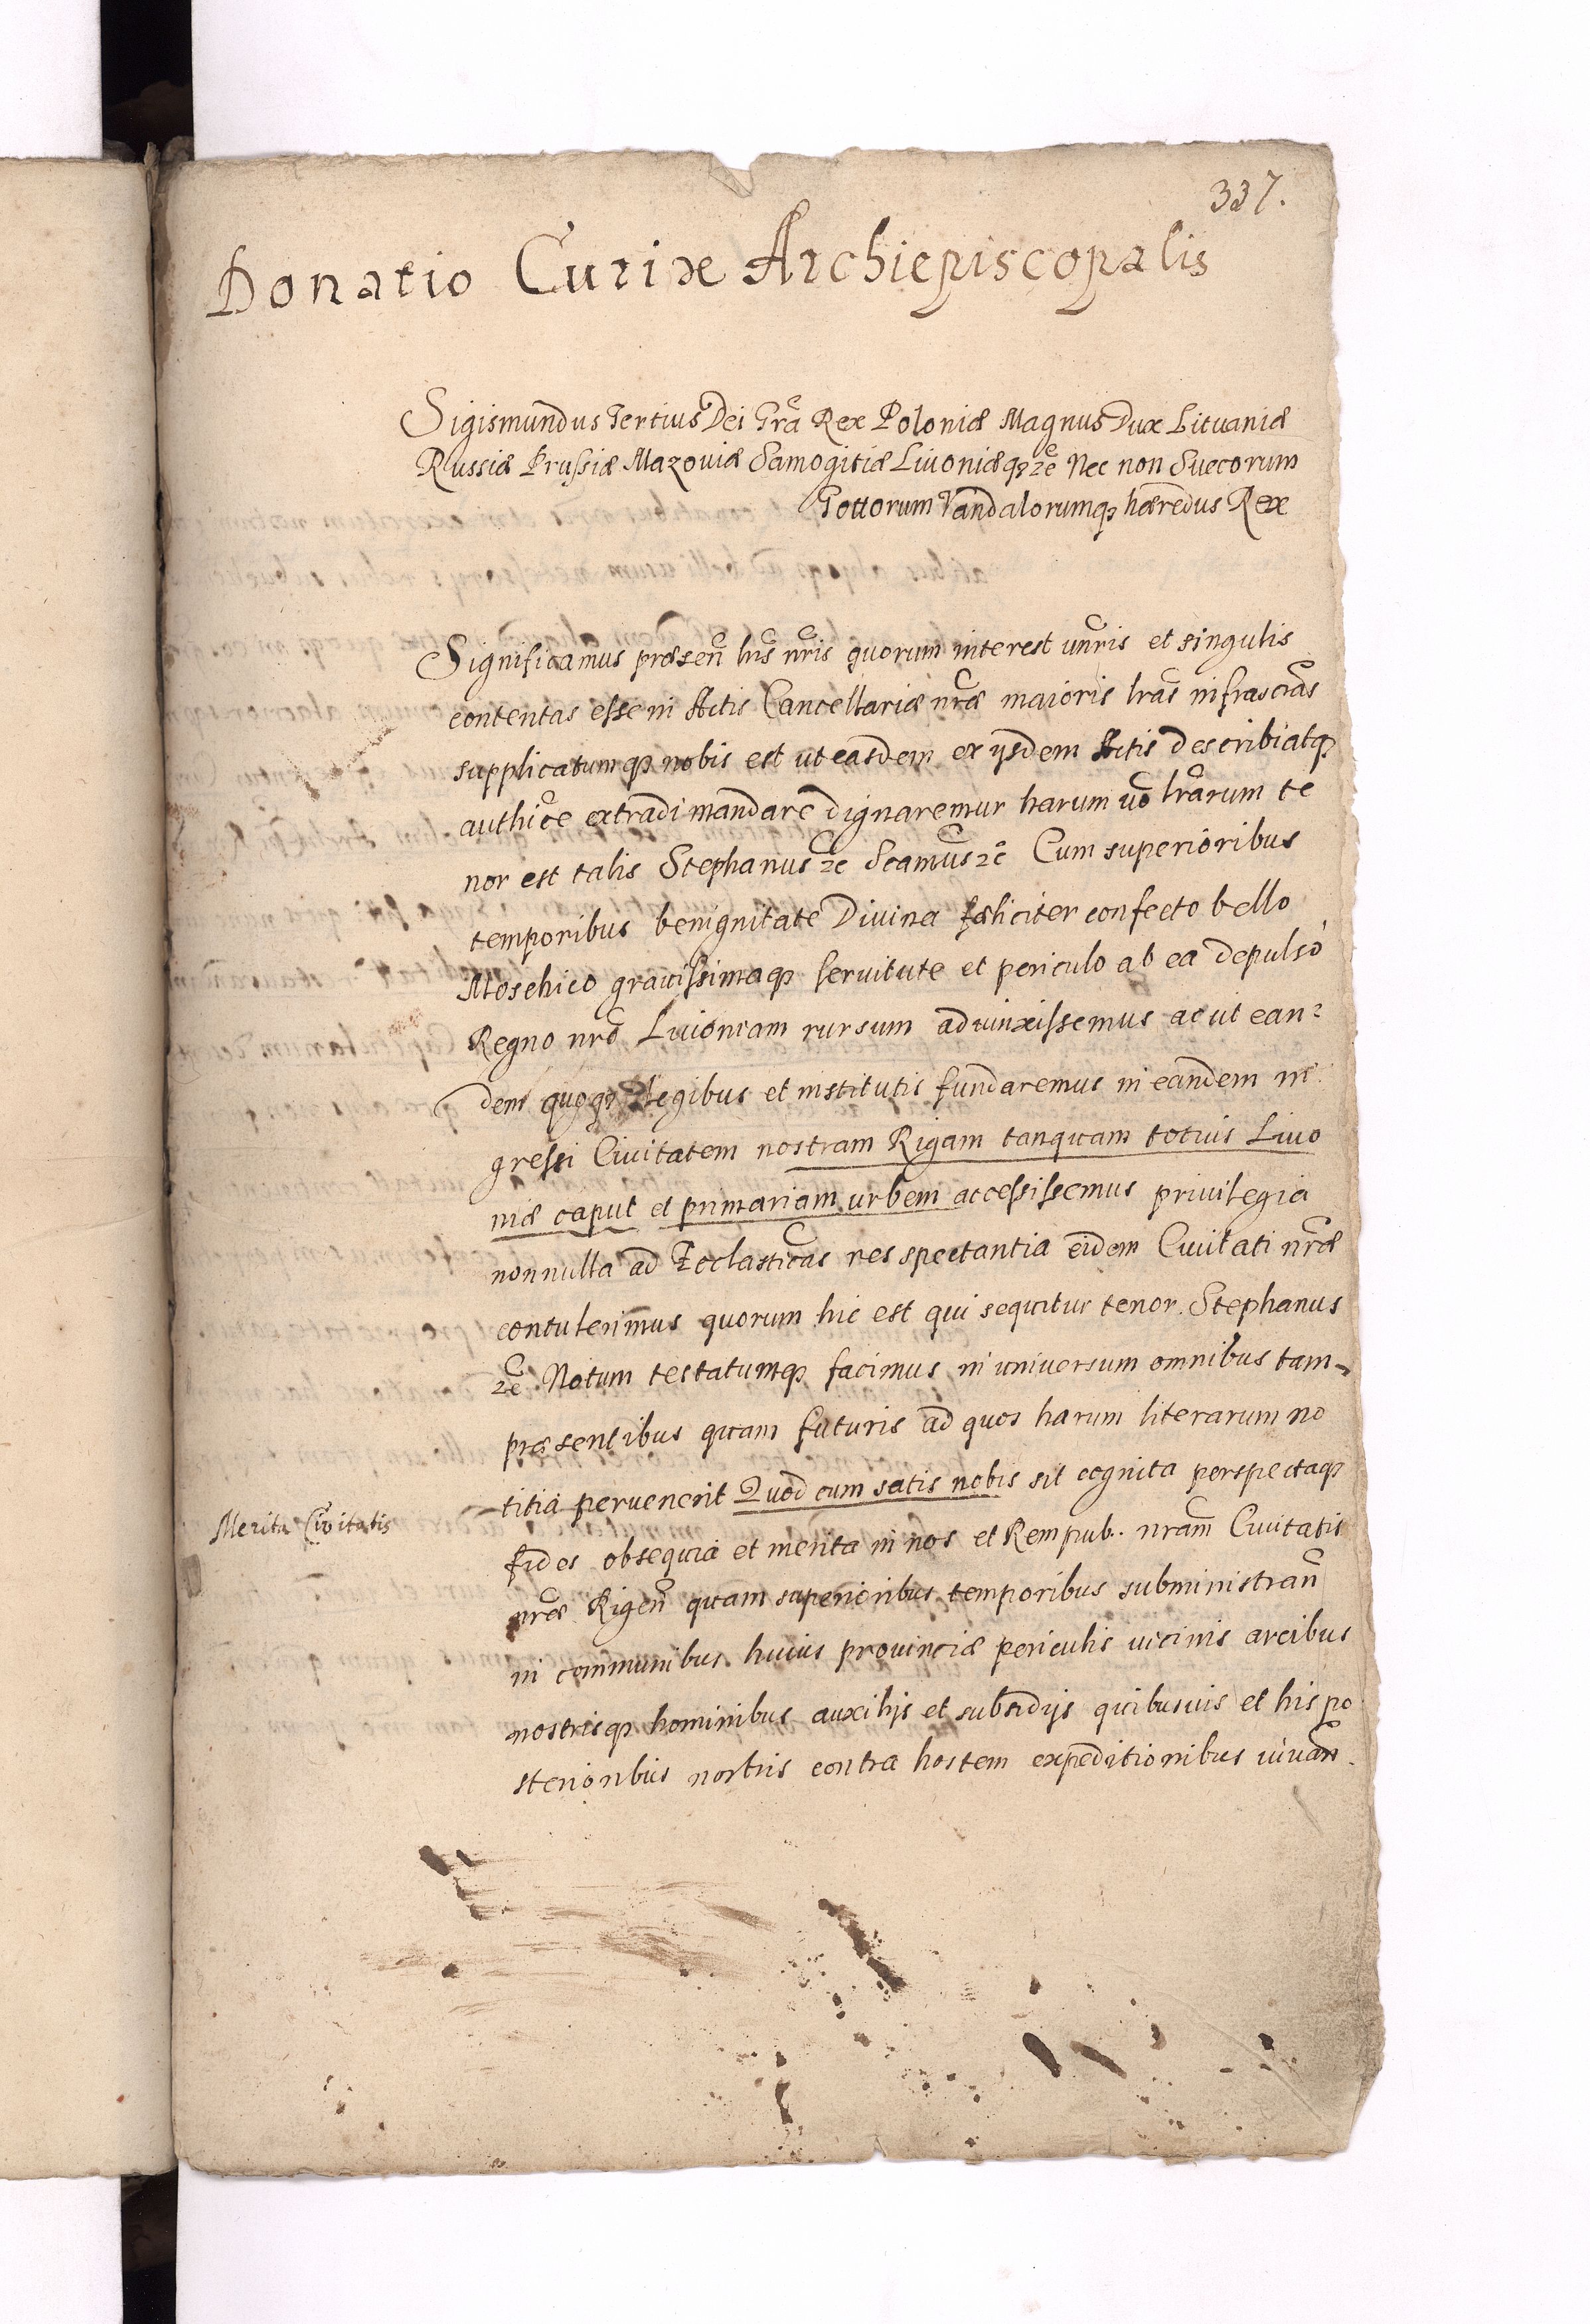 337.
Donatio Curiæ Archiepiscopalis
Sigismundus Tertius Dei Gra Rex Poloniæ Magnus Dux Lituaniæ
Russiæ Prussiæ Mazoviæ Samogitiæ Livoniæq; zc Nec non Svecorum
Gottorum Vandalorumq; hæredus Rex
Significamus præsen lris nris quorum interest unris et singulis
contentas esse in Actis Cancellariæ nræ maioris lras infrascras
supplicatumq; nobis est ut easdem ex ijsdem Actis describi atq;
authice extradi mandare dignaremur harum vo lrarum te
nor est talis Stephanus zc Scamus zc Cum superioribus
temporibus benignitate Divina fæliciter confecto bello
Moschico gravissimaq; servitute et periculo ab ea depulso
Regno nro Livoniam rursum adiunxissemus ac ut ean=
dem quoq; legibus et institutis fundaremus in eandem in
gressi Civitatem nostram Rigam tanquam totius Livo
niæ caput et primariam urbem accessissemus privilegia
nonnulla ad Ecclasticas res spectantia eidem Civitati nræ
contulerimus quorum hic est qui sequitur tenor. Stephanus
zc. Notum testatumq; facimus in universum omnibus tam
præsentibus quam futuris ad quos harum literarum no
titia pervenerit Quod cum satis nobis sit cognita perspectaq;
Merita Civitatis
fides obsequia et merita in nos et Rempub. nram Civitatis
nræ Rigen quam superioribus temporibus subministran
in communibus huius provinciæ periculis vicinis arcibus
nostrisq; hominibus auxilijs et subsidijs quibusvis et his po
sterioribus nostris contra hostem expeditionibus iuvan